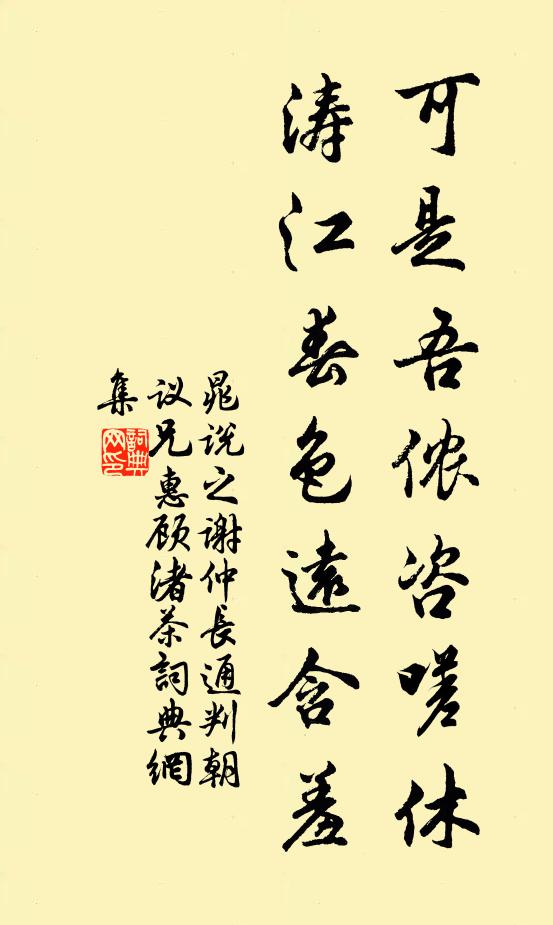 可是吾侬咨嗟休
涛江春色遠含羞
晁说之谢仲長通判朝
议兄惠顾渚茶詞典網
集
詞典网印